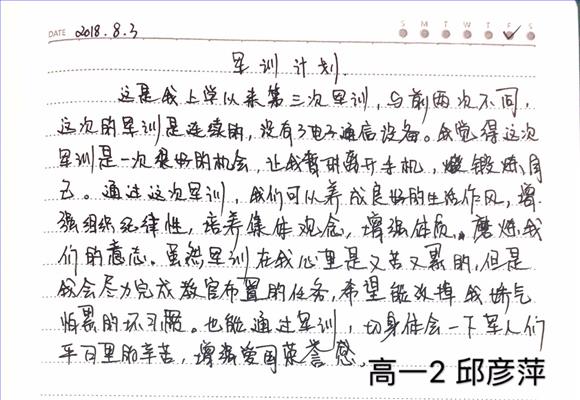 DATE 2018.8.3 S M T W T F S
军训计划
这是我上学以来第三次军训,与前两次不同,
这次的军训是连续的,没有了电子通信设备。我觉得这次
军训是一次很好的机会,让我暂时离开手机,锻炼自
己。通过这次军训,我们可以养成良好的生活作风,增
强组织纪律性,培养集体观念,增强体质,磨炼我
们的意志。虽然军训在我心里是又苦又累的,但是
我会尽力完成教官布置的任务,希望能改掉我娇气
怕累的坏习惯。也能通过军训,切身体会一下军人们
平日里的辛苦,增强爱国荣誉感。
高一2 邱彦萍